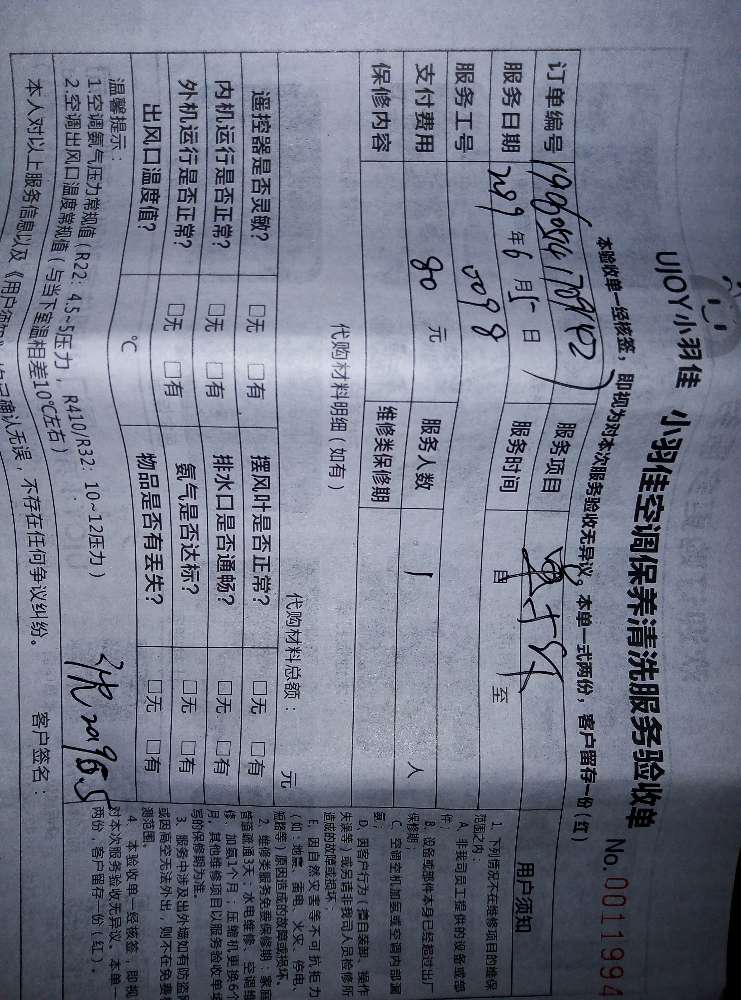 UJOY小羽佳 小羽佳空调保养清洗服务验收单 No.0011994
本验收单一经核签，即视为对本次服务验收无异议。本单一式两份，客户留存一份（红）
订单编号 服务项目
服务日期 2019年6月5日 服务时间 自 至
服务工号 0098
支付费用 80 元 服务人数 1 人
保修内容 维修类保修期
代购材料明细（如有） 代购材料总额： 元
遥控器是否灵敏？ □无 □有 摆风叶是否正常？ □无 □有
内机运行是否正常？ □无 □有 排水口是否通畅？ □无 □有
外机运行是否正常？ □无 □有 氨气是否达标？ □无 □有
出风口温度值？ ℃ 物品是否有丢失？ □无 □有
温馨提示：
1.空调氨气压力常规值（R22：4.5~5压力，R410/R32：10~12压力）
2.空调出风口温度常规值（与当下室温相差10℃左右）
本人对以上服务信息以及《用户须知》均已确认无误，不存在任何争议纠纷。 客户签名：
2019.6.5
用户须知
1、下列情况不在维修项目的维保
范围之内：
A、非我司员工提供的设备或部
件；
B、设备或部件本身已经超过出厂
保修期；
C、空调空机加氨或空调内部漏
氨；
D、因客户行为（擅自装卸、操作
失误等）或另请非我司人员检修所
造成的故障或损坏；
E、因自然灾害等不可抗拒力
（如：地震、雷电、火灾、停电、
短路等）原因造成的故障或损坏。
2、维修类服务免费保修期：家庭
管道疏通3天；水电维修、空调维
修、加氨1个月；压缩机更换6个
月，其他维修项目以服务验收单填
写的保修期为准。
3、服务中涉及出外墙如有防盗
或因高空无法外出，则不在免费
测范围。
4、本验收单一经核签，即视
对本次服务验收无异议。本单一
两份，客户留存一份（红）。